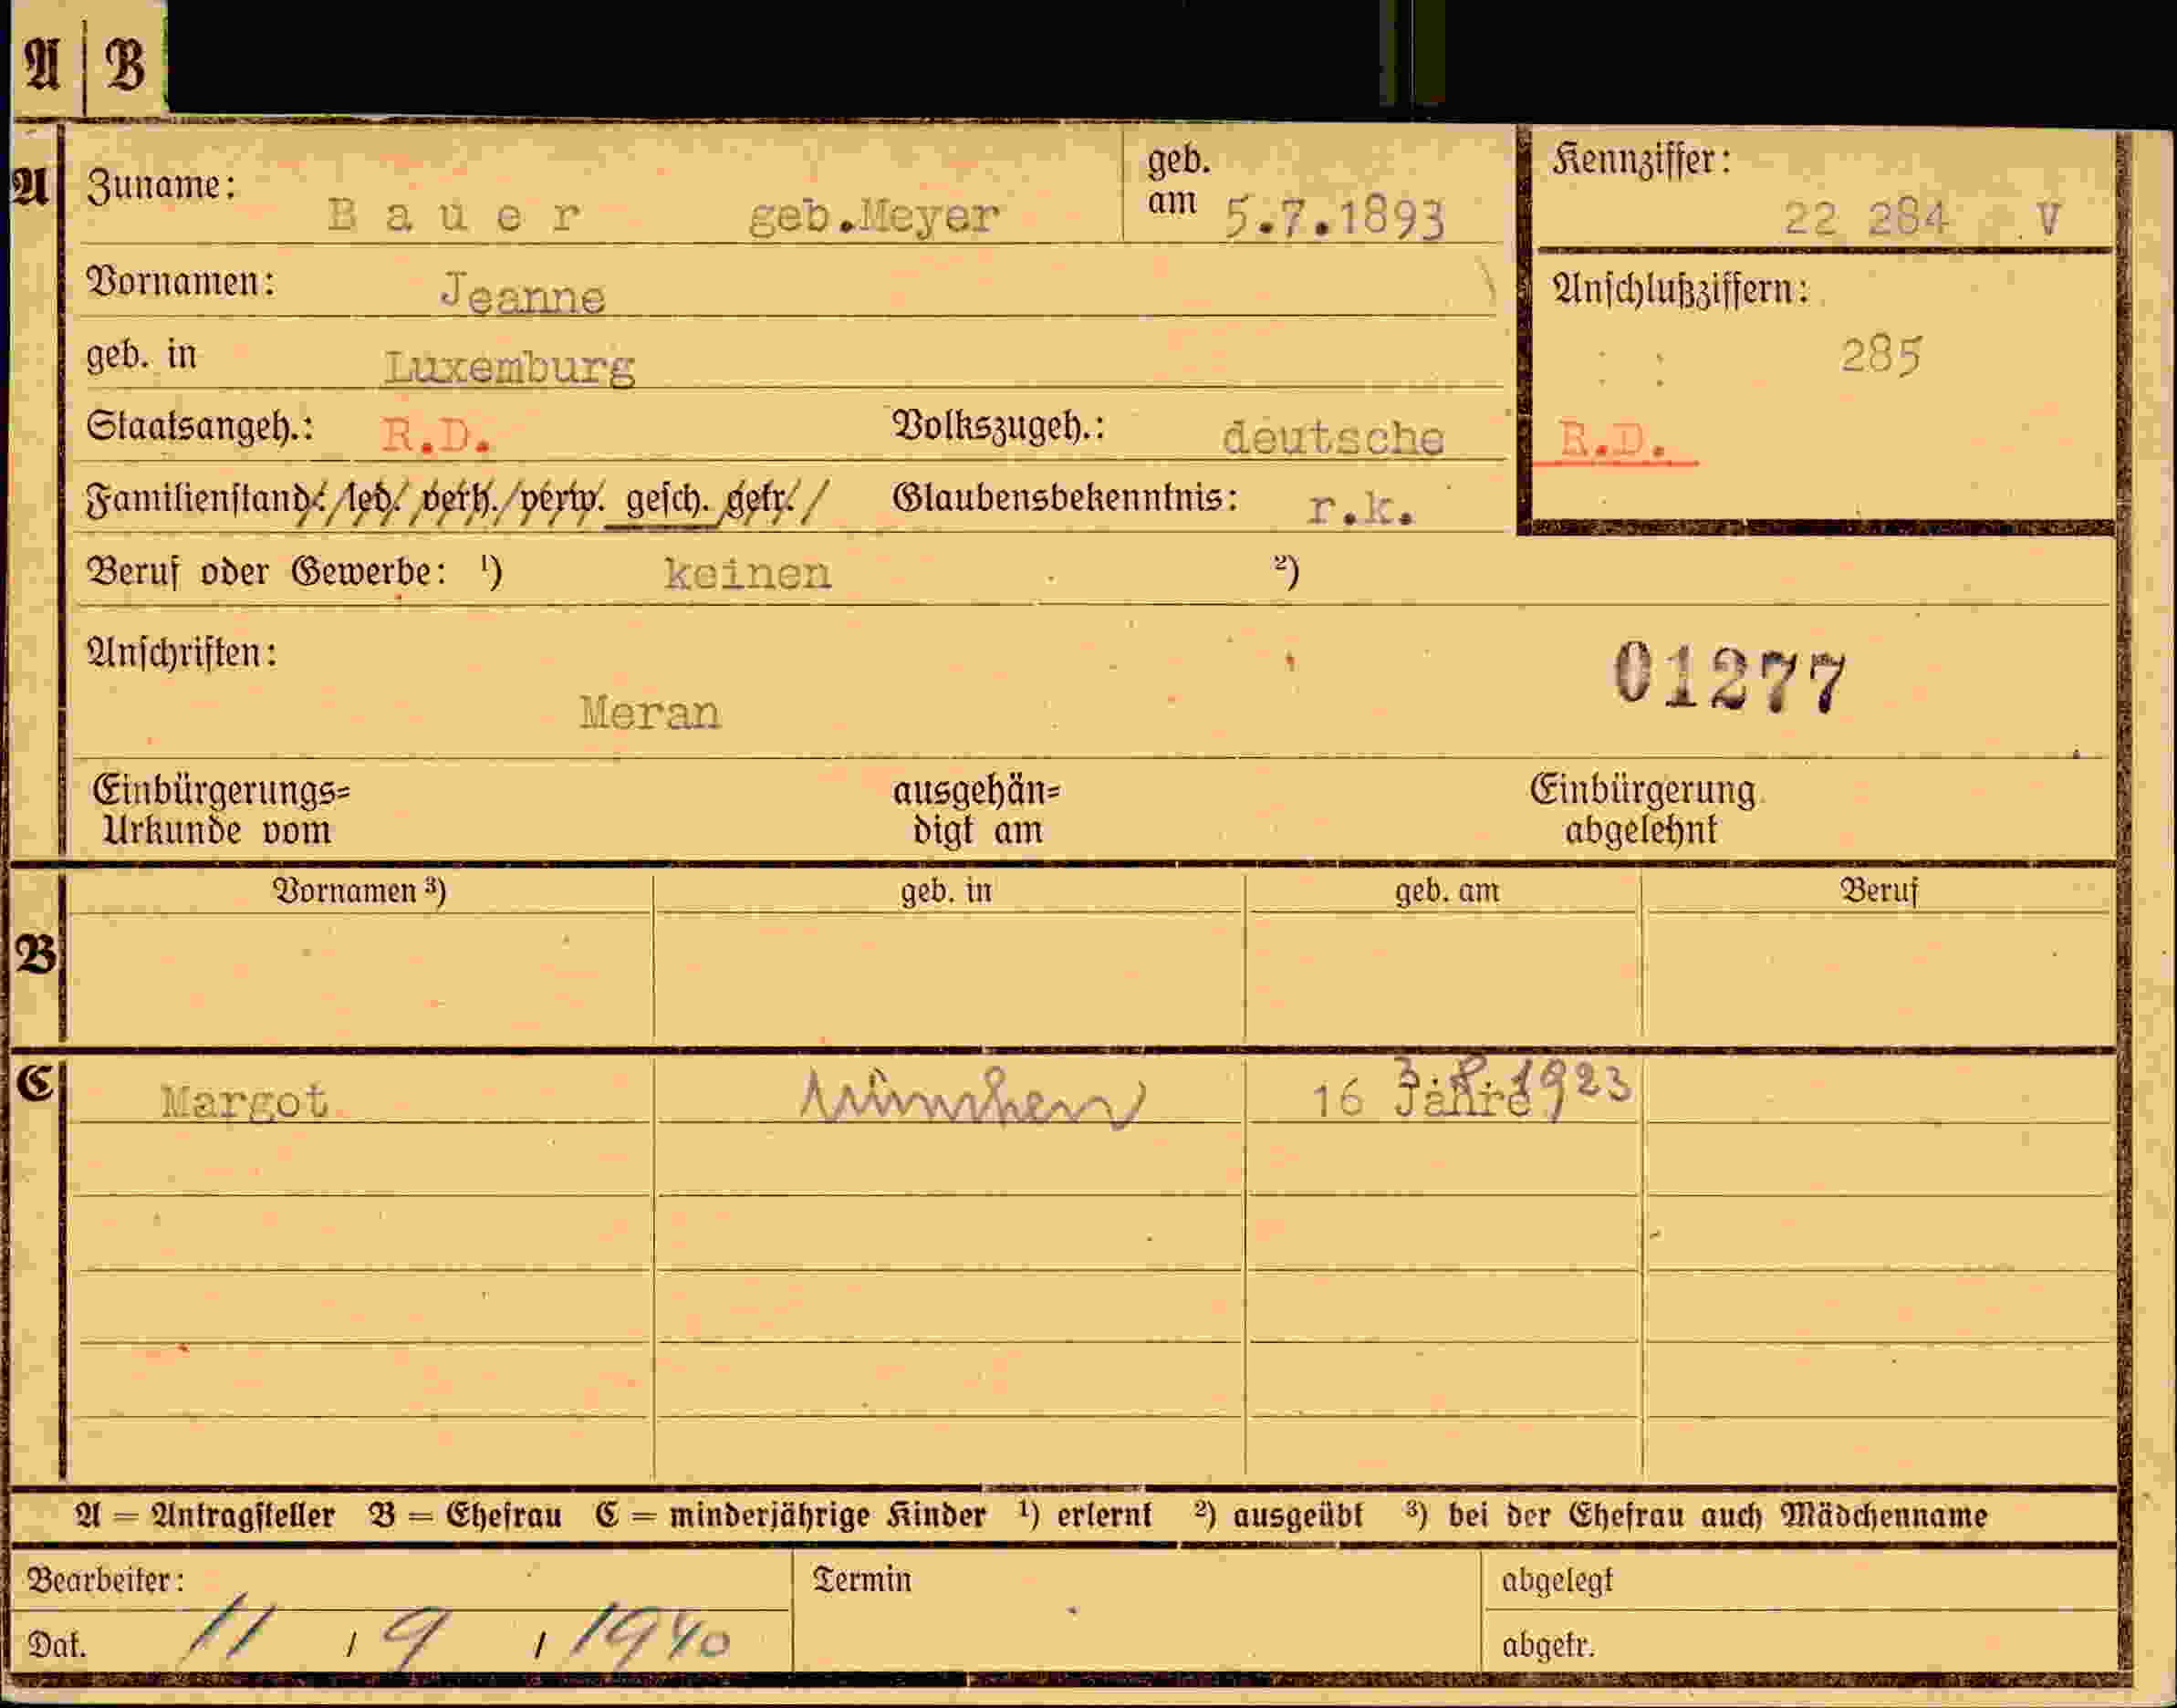 A | B
A Zuname: Bauer geb.Meyer geb. am 5.7.1893 Kennziffer: 22 284 V
Vornamen: Jeanne Anschlußziffern:
geb. in Luxemburg 285
Staatsangeh.: R.D. Volkszugeh.: deutsche R.D.
Familienstand: led. verh. verw. gesch. getr. Glaubensbekenntnis: r.k.
Beruf oder Gewerbe: ¹) keinen ²)
Anschriften: 01277
Meran
Einbürgerungs= ausgehän= Einbürgerung
Urkunde vom digt am abgelehnt
Vornamen ³) geb. in geb. am Beruf
B
C Margot München 16 Jahre 1923
A = Antragsteller B = Ehefrau C = minderjährige Kinder ¹) erlernt ²) ausgeübt ³) bei der Ehefrau auch Mädchenname
Bearbeiter: Termin abgelegt
Dat. 11 / 9 / 1940 abgetr.